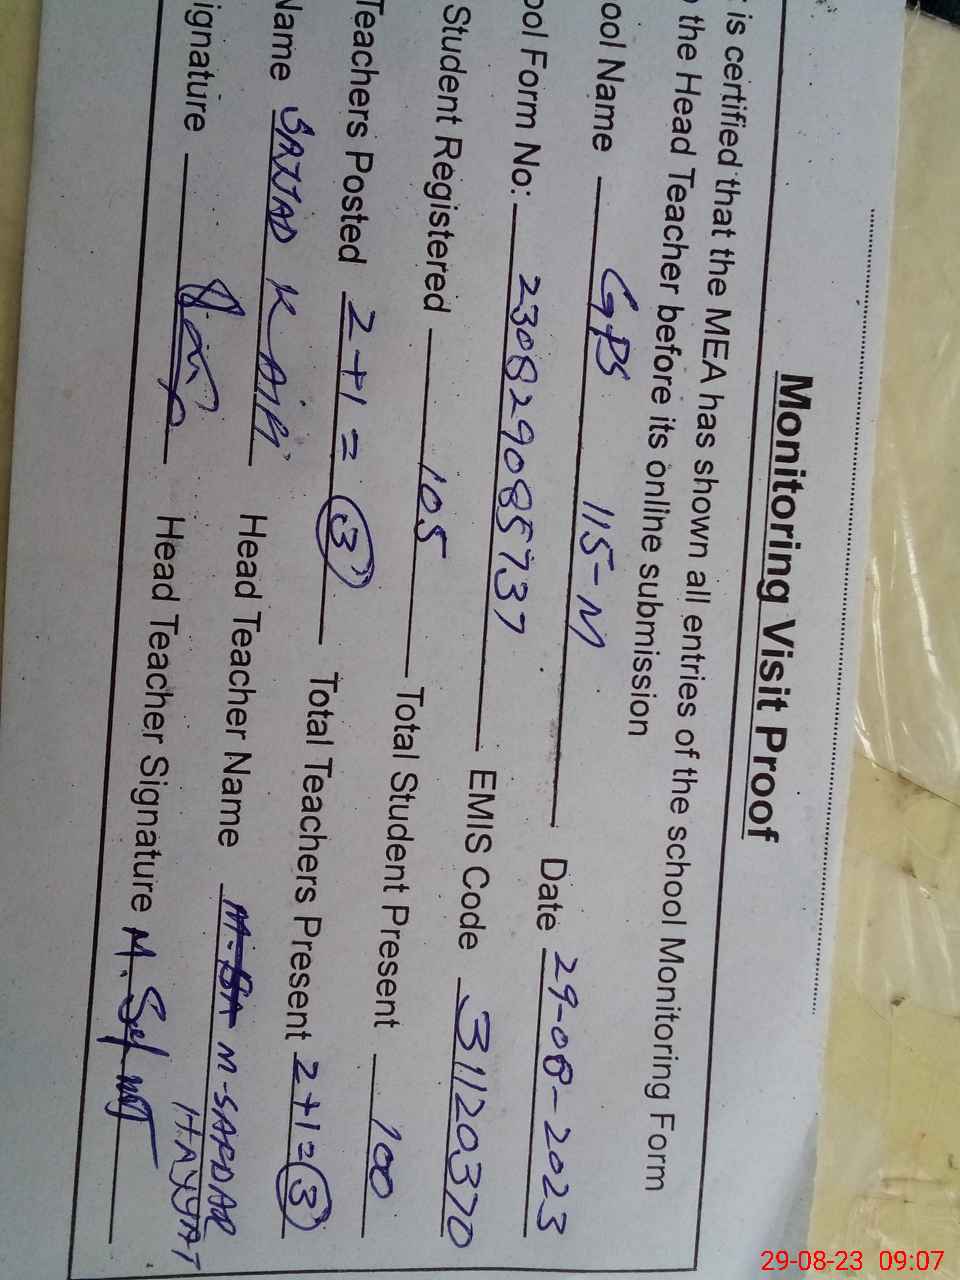 Monitoring Visit Proof
is certified that the MEA has shown all entries of the school Monitoring Form
the Head Teacher before its online submission
ool Name GPS 115-M Date 29-08-2023
ool Form No: 230829085737 EMIS Code 31120370
Student Registered 105 Total Student Present 100
Teachers Posted 2+1=3 Total Teachers Present 2+1=3
Name SAJJAD KABIR Head Teacher Name M-SAFDAR
HAYYAT
ignature Head Teacher Signature M.
29-08-23 09:07